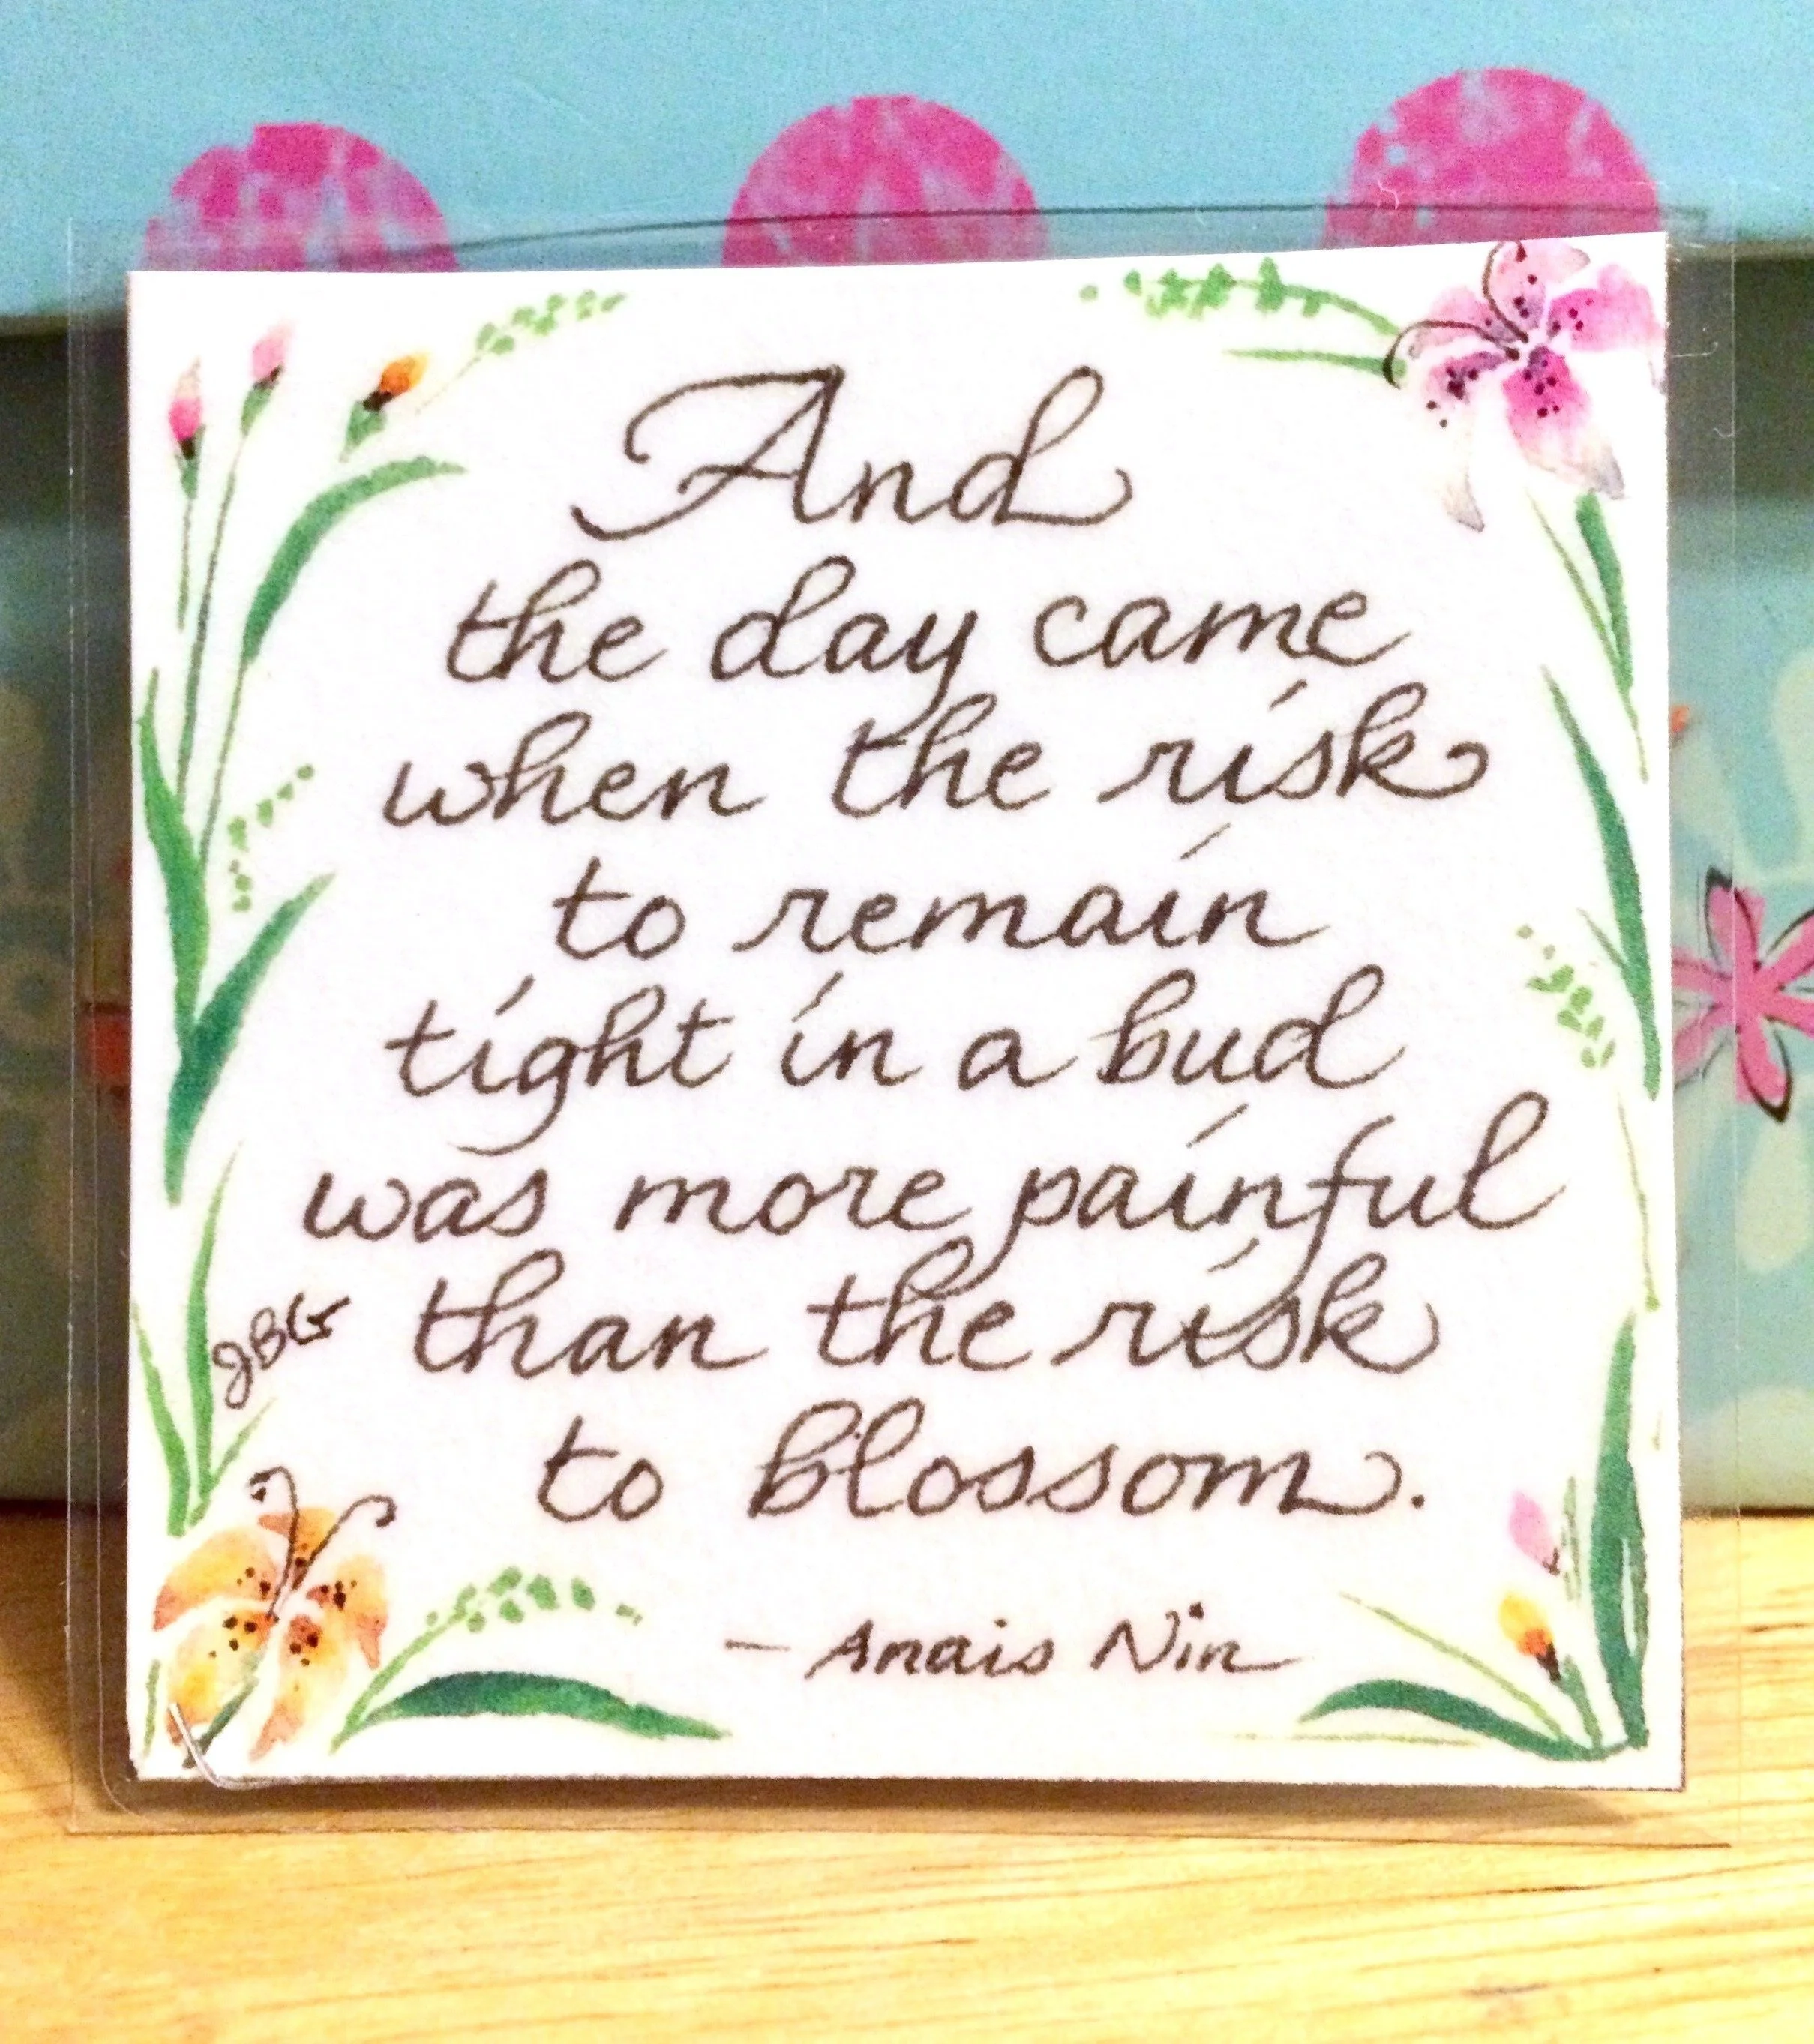 And
the day came
when the risk
to remain
tight in a bud
was more painful
than the risk
JBG
to blossom.
— Anais Nin